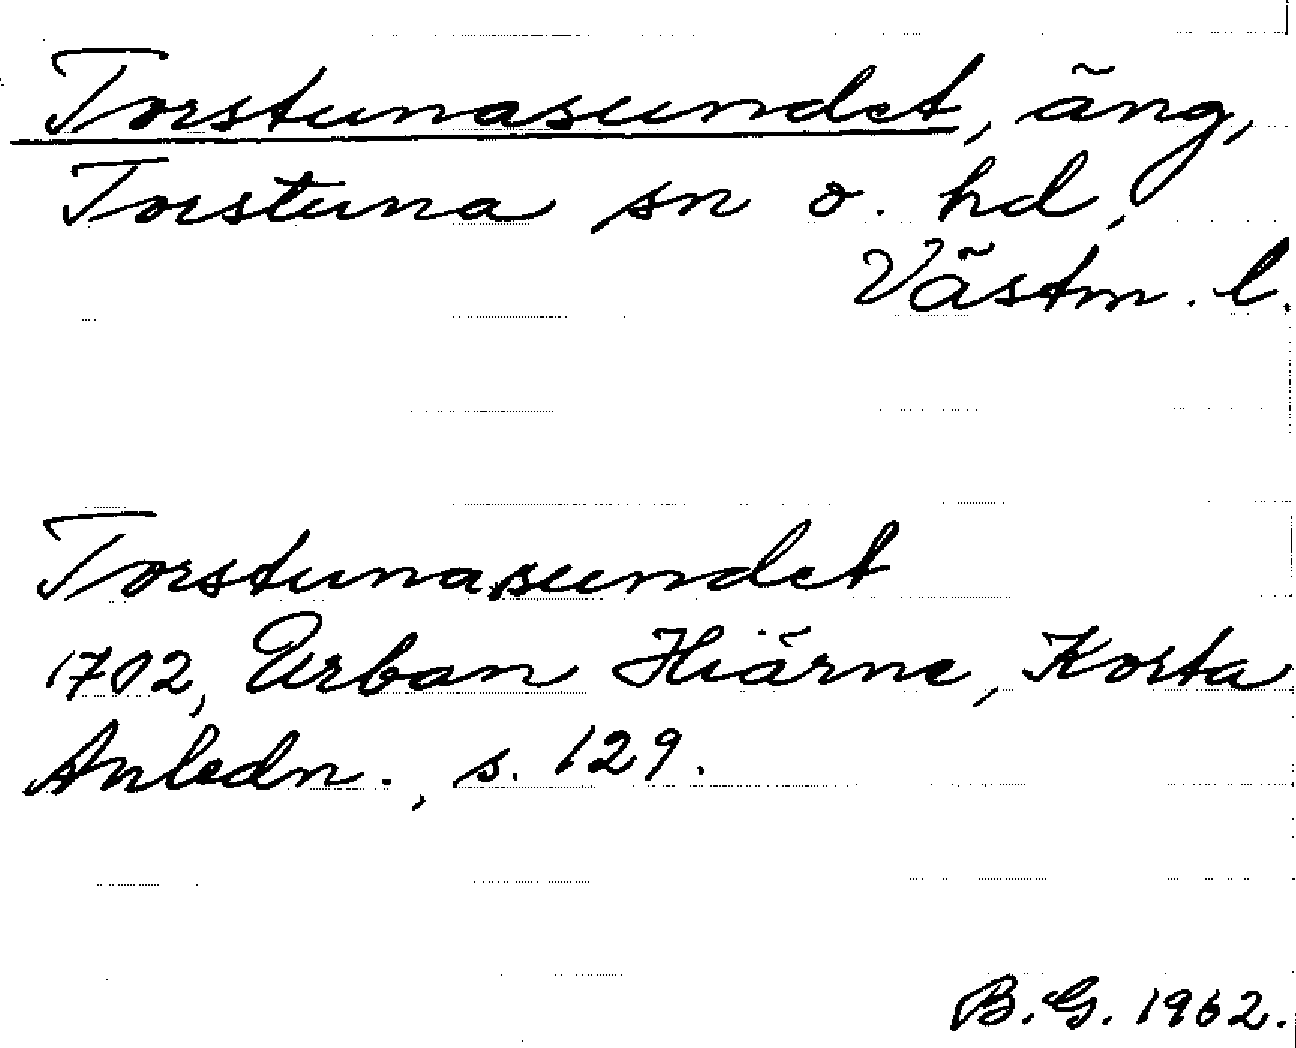 Torstunasundet, äng,
Torstuna sn o. hd,
Västm. l.
Torstunasundet
1702, Urban Hiärne, Korta
Anledn., s. 129.
B.G. 1962.